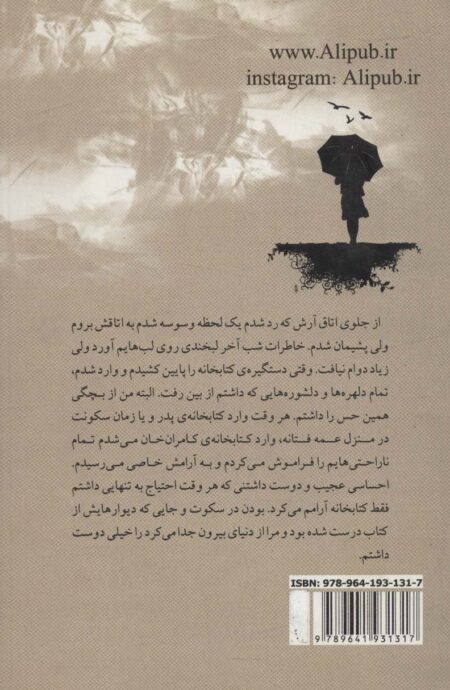 www.Alipub.ir
instagram: Alipub.ir
از جلوی اتاق آرش که رد شدم یک لحظه وسوسه شدم به اتاقش بروم
ولی پشیمان شدم. خاطرات شب آخر لبخندی روی لب‌هایم آورد ولی
زیاد دوام نیافت. وقتی دستگیره‌ی کتابخانه را پایین کشیدم و وارد شدم،
تمام دلهره‌ها و دلشوره‌هایی که داشتم از بین رفت. البته من از بچگی
همین حس را داشتم. هر وقت وارد کتابخانه‌ی پدر و یا زمان سکونت
در منزل عمه فتانه، وارد کتابخانه‌ی کامران‌خان می‌شدم تمام
ناراحتی‌هایم را فراموش می‌کردم و به آرامش خاصی می‌رسیدم.
احساسی عجیب و دوست داشتنی که هر وقت احتیاج به تنهایی داشتم
فقط کتابخانه آرامم می‌کرد. بودن در سکوت و جایی که دیوارهایش از
کتاب درست شده بود و مرا از دنیای بیرون جدا می‌کرد را خیلی دوست
داشتم.
ISBN: 978-964-193-131-7
9 789641 931317